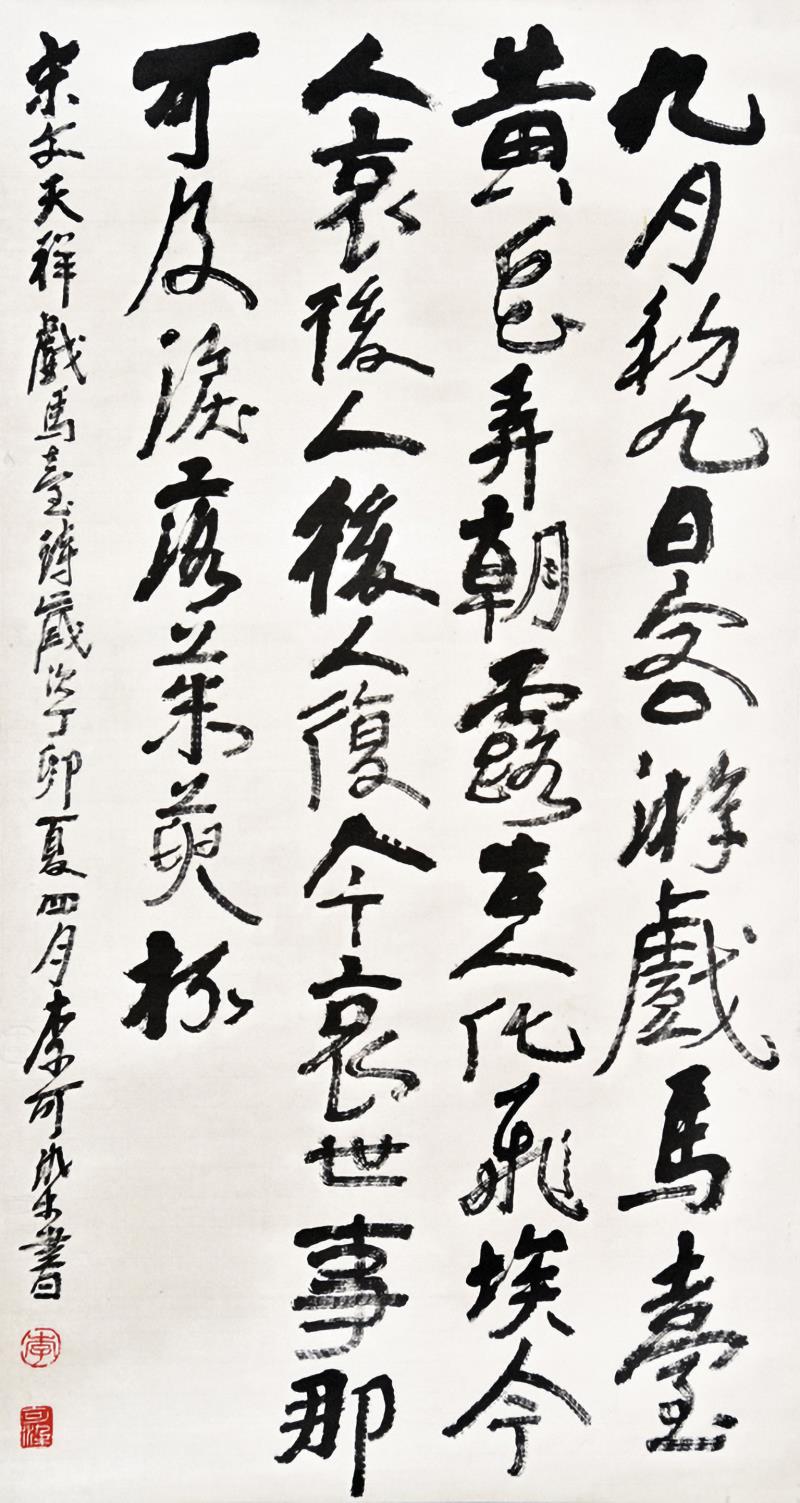 九月初九日客游戲馬臺
黄花弄朝露古人化飛埃今
人哀後人後人復今哀世事那
可及淚落茱萸杯
宋文天祥戲馬臺詩歲次丁卯夏四月李可染書
李
可染